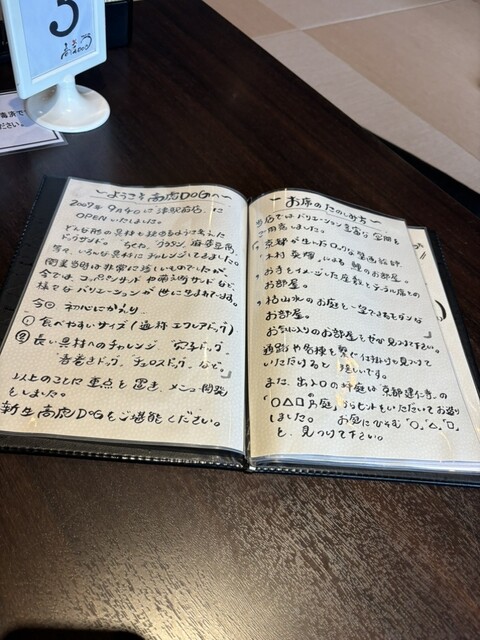 5
高虎
毒済で
ださい。
～ようこそ高虎DOGへ～
2009年9月4日に津駅前店に
OPENいたしました。
どんな形の具材も
ドッグサンド。
等々、いろんな具材にチャレンジしてきました。
開業当初は非常に珍しいものでしたが、
今では コッペサンドや サンドなど、
様々なバリエーションが世に生まれています。
今回 初心にかえり
① 食べやすいサイズ (通称 エクレアドッグ)
② 長い具材へのチャレンジ "穴子ドッグ"
"春巻きドッグ" "チュロスドッグ" など。
以上のことに重点を置き、メニュー開発
をしました。
新生高虎DOGをご堪能ください。
～お席のたのしみ方～
当店ではバリエーション豊富な空間を
ご用意しました。
京都が生んだロックな壁画絵師
"木村英輝"による 鯉のお部屋。
お寺をイメージした座敷とテラス席との
お部屋。
枯山水のお庭を一望できるモダンな
お部屋。
お気に入りのお部屋をぜひ見つけて下さい。
通路や各種を
いただけると 嬉しいです。
また、出入口の お庭は 京都建仁寺の
「○△□の庭」からヒントをいただいてお造り
しました。 お庭にひそむ "○、△、□"
を、見つけて下さい。